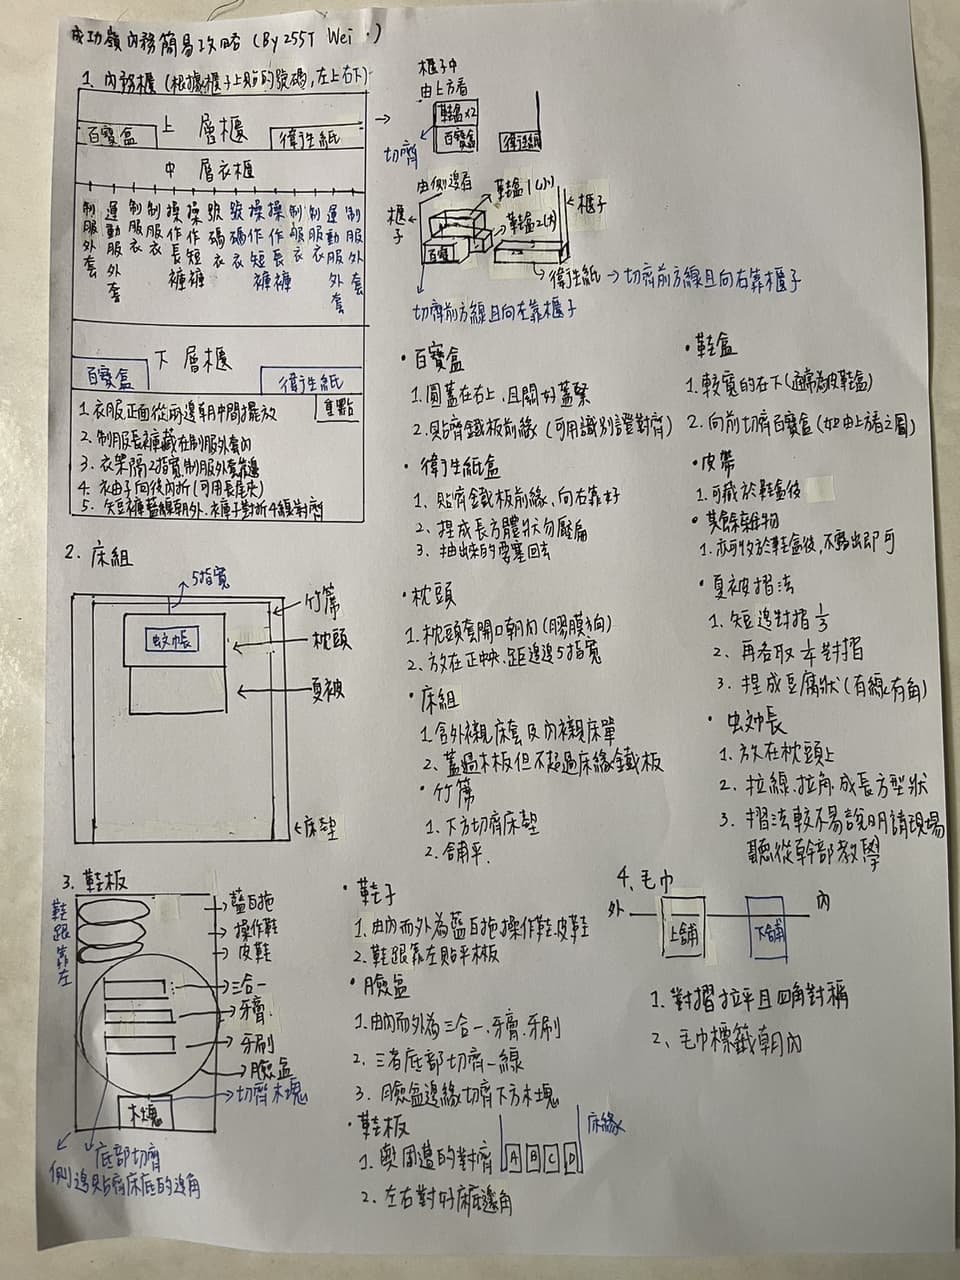 成功嶺內務簡易攻略(By 255T Wei .)
1. 內務櫃(根據櫃子上貼的號碼,左上右下)
上層櫃
百寶盒
衛生紙
中層衣櫃
制服外套
運動服外套
制服衣
制服衣
操作長褲
操作短褲
號碼衣
號碼衣
操作短褲
操作長褲
制服衣
制服衣
運動服外套
制服外套
下層櫃
百寶盒
衛生紙
重點
1. 衣服正面從兩邊朝中間擺放
2. 制服長褲藏在制服外套內
3. 衣架隔2指寬,制服外套靠邊
4. 衣由子向後內折(可用長尾夾)
5. 短褲藍線朝外、褲子對折4線對齊
櫃子中
由上方看
鞋盒x2
百寶盒
衛生紙
切齊
由側邊看
鞋盒1(小)
鞋盒2(大)
櫃子
櫃子
百寶
衛生紙→切齊前方線且向右靠櫃子
切齊前方線且向左靠櫃子
・百寶盒
1. 圓蓋在右上,且關好蓋緊
2. 貼齊鐵板前緣(可用識別證對齊)
・衛生紙盒
1. 貼齊鐵板前緣、向右靠好
2. 捏成長方體狀勿壓扁
3. 抽出來的要塞回去
・鞋盒
1. 較寬的在下(通常為皮鞋盒)
2. 向前切齊百寶盒(如由上方看之圖)
・皮帶
1. 可藏於鞋盒後
・其餘雜物
1. 亦可收於鞋盒後,不露出即可
2. 床組
5指寬
竹蓆
蚊帳
枕頭
夏被
床墊
・枕頭
1. 枕頭套開口朝內(膠膜方向)
2. 放在正中央、距邊邊5指寬
・床組
1. 含外襯床套及內襯床單
2. 蓋過木板但不超過床緣鐵板
・竹蓆
1. 下方切齊床墊
2. 鋪平.
・夏被摺法
1. 短邊對摺⅓
2. 再各取¼對摺
3. 捏成豆腐狀(有線有角)
・蚊帳
1. 放在枕頭上
2. 拉線、拉角、成長方型狀
3. 摺法較不易說明請現場
聽從幹部教學
3. 鞋板
鞋跟靠左
藍白拖
操作鞋
皮鞋
三合一
牙膏.
牙刷
臉盆
切齊木塊
木塊
底部切齊
側邊貼齊床底的邊角
・鞋子
1. 由內而外為藍白拖、操作鞋、皮鞋
2. 鞋跟靠左貼平木板
・臉盆
1. 由內而外為三合一、牙膏、牙刷
2. 三者底部切齊一線
3. 臉盆邊緣切齊下方木塊
・鞋板
1. 與周遭的對齊
A B C D
床緣
2. 左右對好床底邊角
4. 毛巾
外
上鋪
下鋪
內
1. 對摺拉平且四角對稱
2. 毛巾標籤朝內